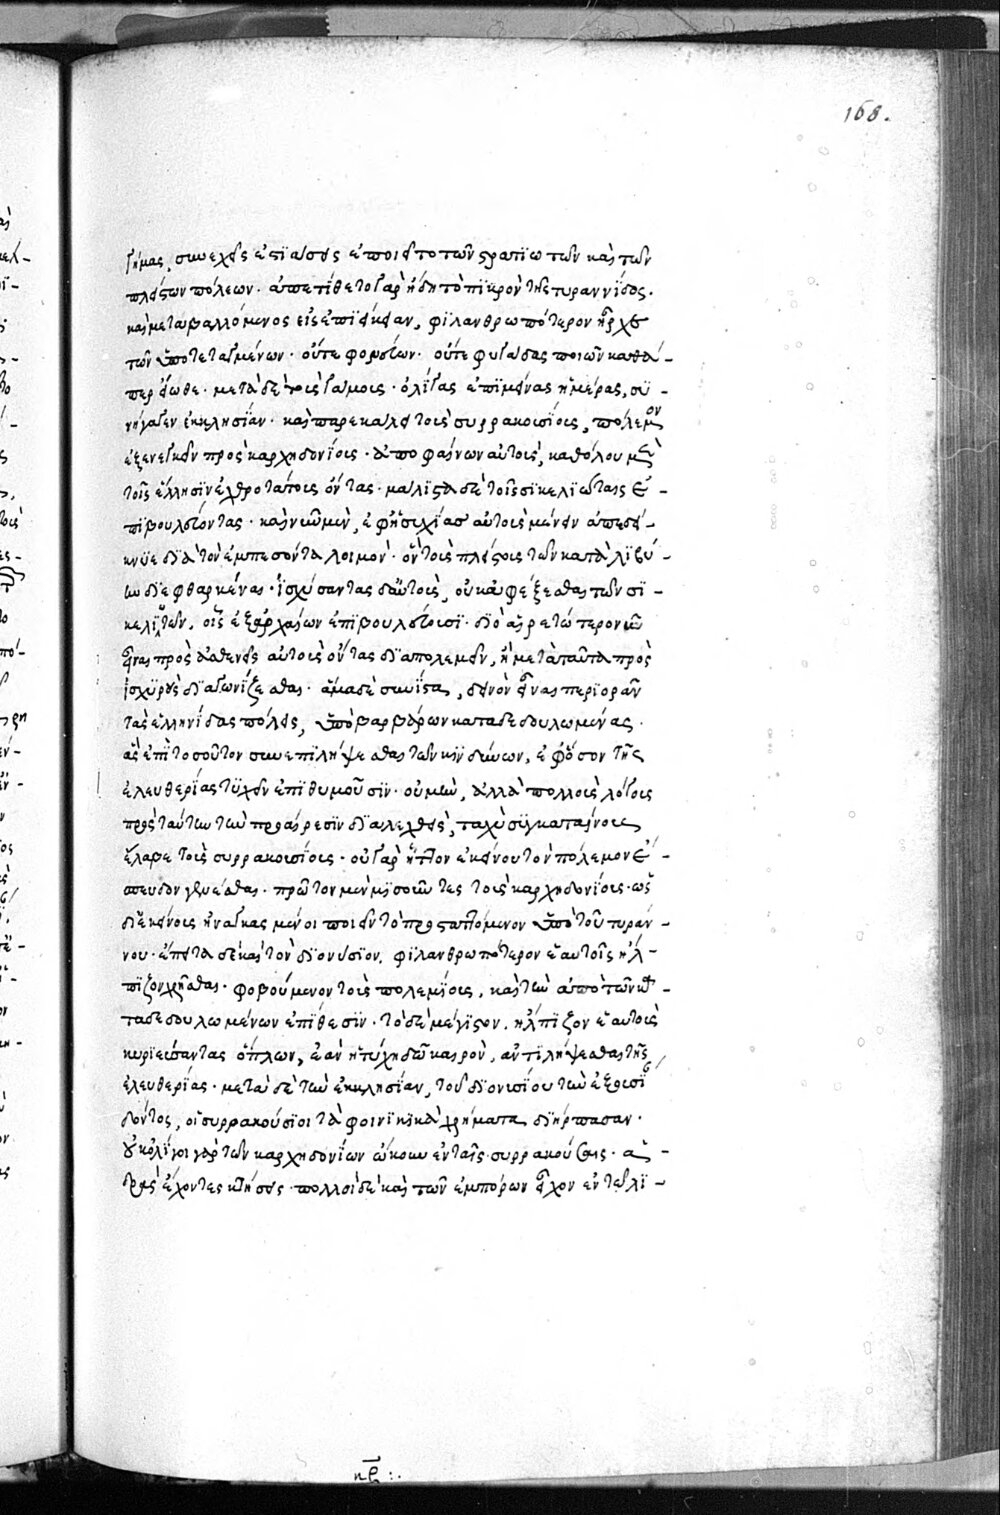 168.
γήμας, συνεχεῖς ἑστιάσεις ἐποιεῖτο τῶν στρατιωτῶν καὶ τῶν
πλείστων πόλεων· ἀπετίθετο γὰρ ἤδη τὸ πικρὸν τῆς τυραννίδος·
καὶ μεταβαλλόμενος εἰς ἐπιείκειαν, φιλανθρωπότερον ἦρχε
τῶν ὑποτεταγμένων· οὔτε φονεύων· οὔτε φυγάδας ποιῶν καθά-
περ εἰώθει· μετὰ δὲ τοὺς γάμους· ὀλίγας ἐπιμείνας ἡμέρας, συ-
νήγαγεν ἐκκλησίαν· καὶ παρεκάλει τοὺς συρρακουσίους, πόλεμον
ἐξενεγκεῖν πρὸς καρχηδονίους· ἀποφαίνων αὐτοὺς, καθόλου μὲν
τοῖς ἕλλησιν ἐχθροτάτους ὄντας· μάλιστα δὲ τοῖς σικελιώταις ἐ-
πιβουλεύοντας· καὶ νῦν μὲν, ἐφ' ἡσυχίας αὐτοὺς μένειν ἀπεδεί-
κνυε διὰ τὸν ἐμπεσόντα λοιμὸν· ὃν τοὺς πλείστους τῶν κατὰ λιβύ-
ην διεφθαρκέναι· ἰσχύσαντας δ' αὐτοὺς, οὐκ ἀφέξεσθαι τῶν σι-
κελιωτῶν, οἷς ἐξ ἀρχαίων ἐπιβουλεύουσι· διὸ αἱρετώτερον νῦν
εἶναι πρὸς ἀσθενεῖς αὐτοὺς ὄντας διαπολεμεῖν, ἢ μετὰ ταῦτα πρὸς
ἰσχυροὺς διαγωνίζεσθαι· ἅμα δὲ συνίστα, δεινὸν εἶναι περιορᾶν
τὰς ἑλληνίδας πόλεις, ὑπὸ βαρβάρων καταδεδουλωμένας·
ἃς ἐπὶ τοσοῦτον συνεπιλήψεσθαι τῶν κινδύνων, ἐφ' ὅσον τῆς
ἐλευθερίας τυχεῖν ἐπιθυμοῦσιν· οὐ μὴν, ἀλλὰ πολλοὺς λόγους
πρὸς ταύτην τὴν προαίρεσιν διαλεχθεὶς, ταχὺ συγκαταίνους
ἔλαβε τοὺς συρρακουσίους· οὐ γὰρ ἧττον ἐκείνου τὸν πόλεμον ἔ-
σπευδον γενέσθαι· πρῶτον μὲν μισοῦντες τοὺς καρχηδονίους· ὡς
δι' ἐκείνους ἠναγκασμένοι ποιεῖν τὸ προσταττόμενον ὑπὸ τοῦ τυράν-
νου· ἔπειτα δὲ καὶ τὸν διονύσιον, φιλανθρωπότερον ἑαυτοῖς ἤλ-
πιζον χρῆσθαι· φοβούμενον τοὺς πολεμίους, καὶ τὴν ἀπὸ τῶν κα-
ταδεδουλωμένων ἐπίθεσιν· τὸ δὲ μέγιστον, ἤλπιζον ἑαυτοὺς
κυριεύσαντας ὅπλων, ἐὰν ἡ τύχη δῶ καιρὸν, ἀντιλήψεσθαι τῆς
ἐλευθερίας· μετὰ δὲ τὴν ἐκκλησίαν, τοῦ διονυσίου τὴν ἐξουσίαν
δόντος, οἱ συρρακούσιοι τὰ φοινικικὰ χρήματα διήρπασαν·
οὐκ ὀλίγοι γὰρ τῶν καρχηδονίων ᾤκουν ἐν ταῖς συρρακούσαις· ἁ-
δρὰς ἔχοντες κτήσεις· πολλοὶ δὲ καὶ τῶν ἐμπόρων εἶχον ἐν τῶ λι-